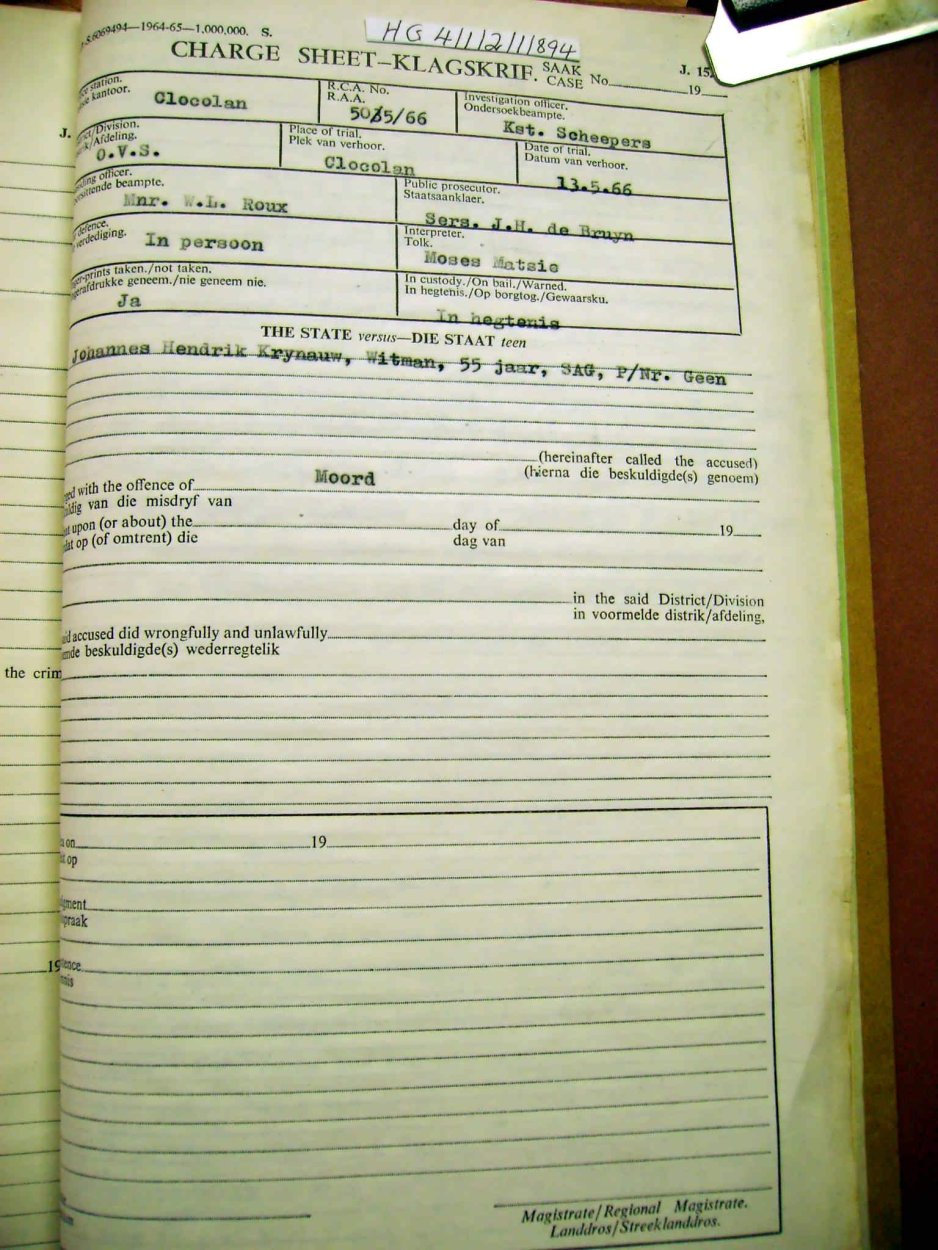 S.6069494—1964-65—1,000,000. S.
HG 4/1/2/1/894
CHARGE SHEET—KLAGSKRIF.
SAAK
CASE No. 19
J. 15
station.
kantoor.
Clocolan
R.C.A. No.
R.A.A.
5015/66
Investigation officer.
Ondersoekbeampte.
Kst. Scheepers
J.
/Division.
/Afdeling.
O.V.S.
Place of trial.
Plek van verhoor.
Clocolan
Date of trial.
Datum van verhoor.
13.5.66
ding officer.
sittende beampte.
Mnr. W.L. Roux
Public prosecutor.
Staatsaanklaer.
Sers. J.H. de Bruyn
defence.
verdediging.
In persoon
Interpreter.
Tolk.
Moses Matsie
er-prints taken./not taken.
erafdrukke geneem./nie geneem nie.
Ja
In custody./On bail./Warned.
In hegtenis./Op borgtog./Gewaarsku.
In hegtenis
THE STATE versus—DIE STAAT teen
Johannes Hendrik Krynauw, Witman, 55 jaar, SAG, P/Nr. Geen
(hereinafter called the accused)
(hierna die beskuldigde(s) genoem)
ged with the offence of Moord
uldig van die misdryf van
at upon (or about) the day of 19
dat op (of omtrent) die dag van
in the said District/Division
in voormelde distrik/afdeling,
aid accused did wrongfully and unlawfully
emde beskuldigde(s) wederregtelik
the crim
on 19
op
gment
praak
19
tence
nis
Magistrate/Regional Magistrate.
Landdros/Streeklanddros.